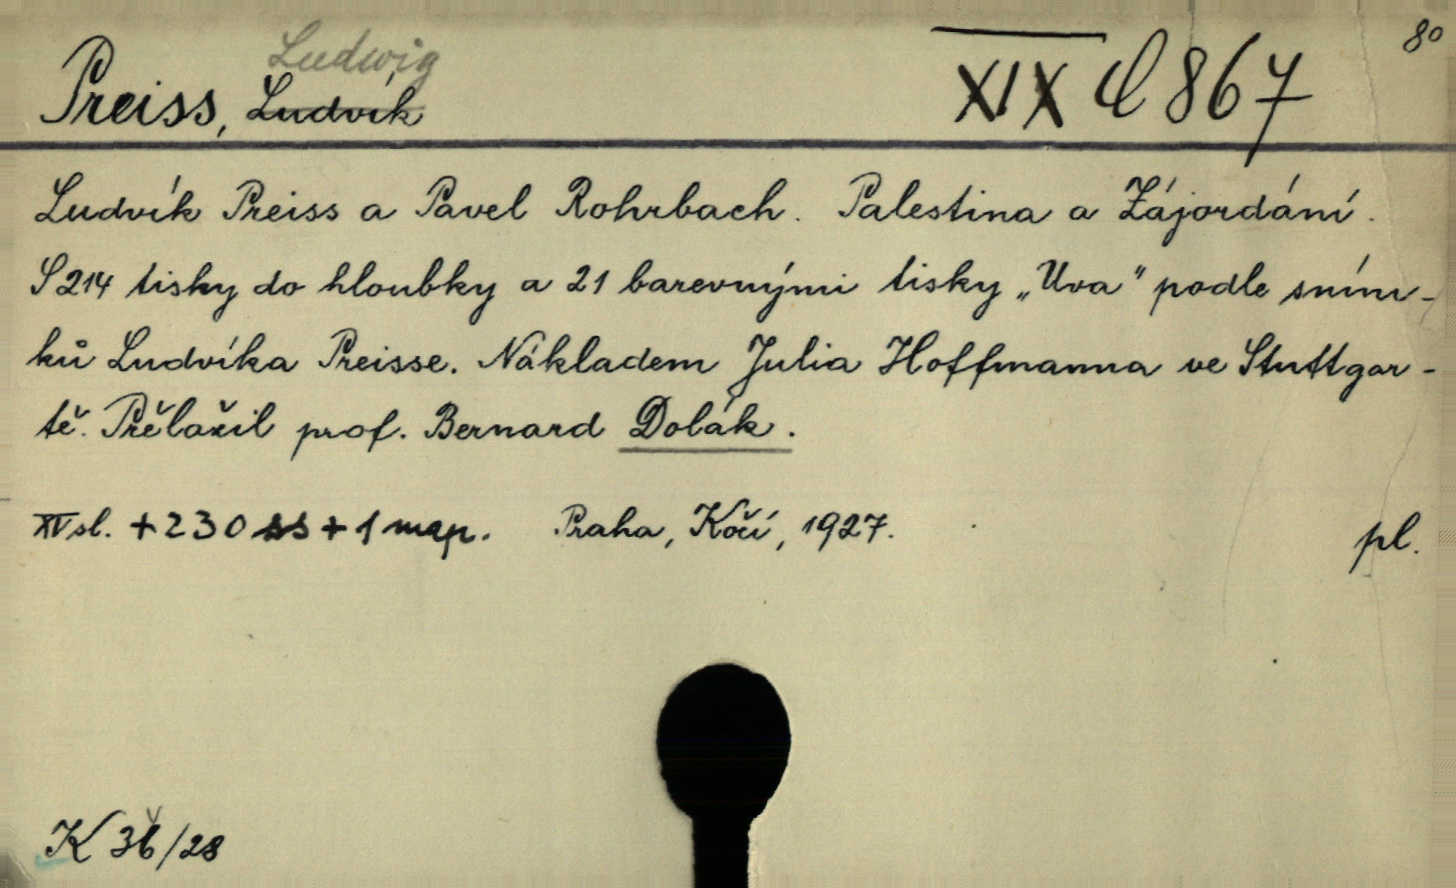 Ludwig
Preiss, Ludvík
XIX d 867
8°
Ludvík Preiss a Pavel Rohrbach. Palestina a Zájordání.
S 214 tisky do hloubky a 21 barevnými tisky „Uva" podle sním-
ků Ludvíka Preisse. Nákladem Julia Hoffmanna ve Stuttgar-
tě. Přěložil prof. Bernard Dolák.
XV sl. + 230 ss + 1 map. Praha, Kočí, 1927.
pl.
K 36/28